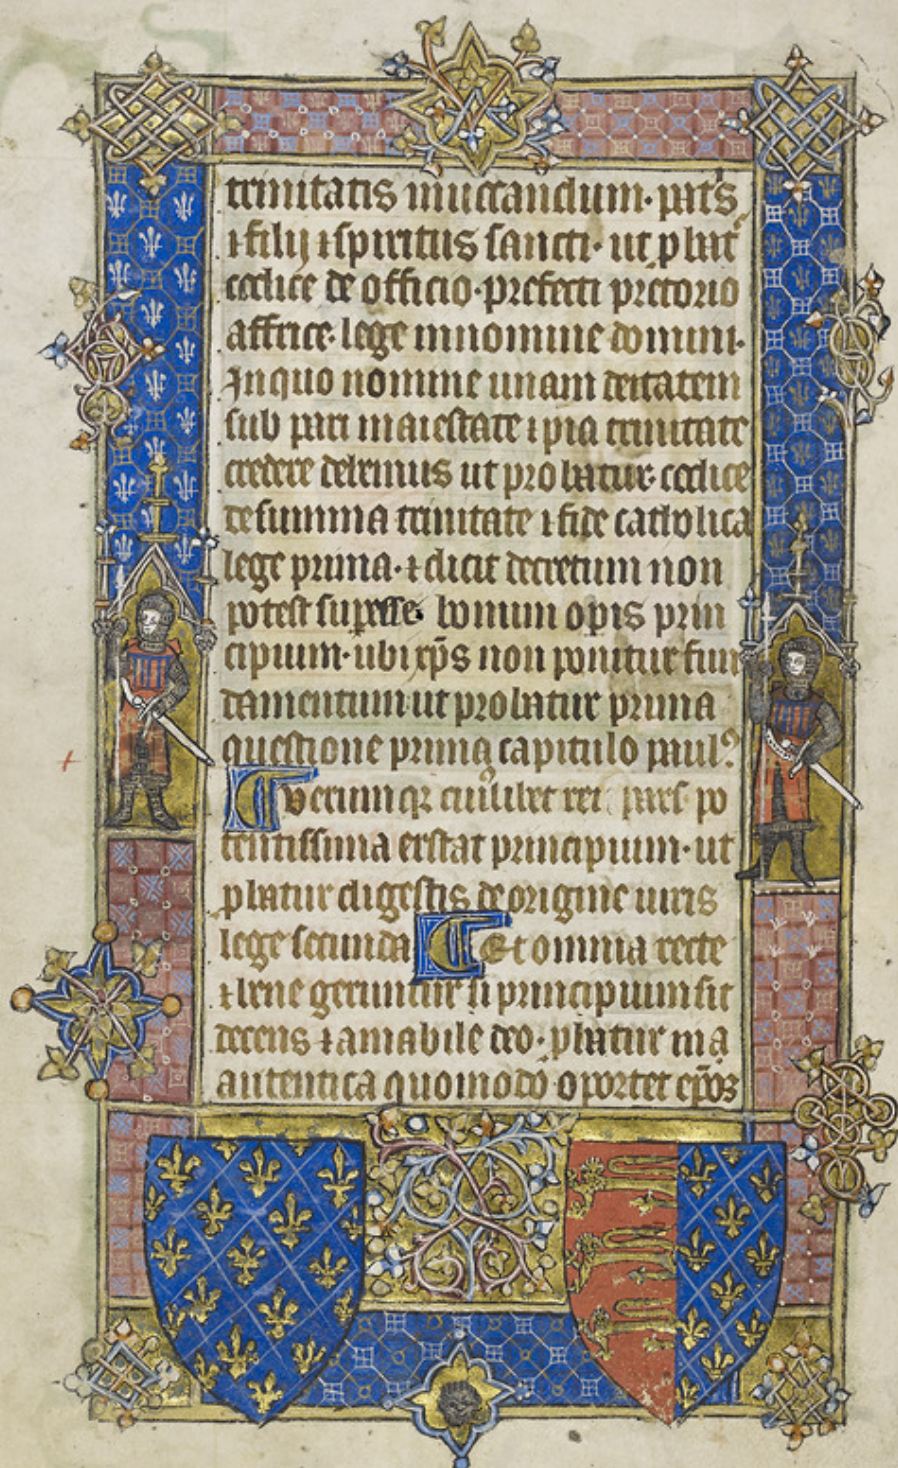 trinitatis inuocandum· pat̾s
⁊ filij ⁊ spiritus sancti· ut p̱bat᷑
codice de officio· prefecti pretorio
affrice· lege in nomine domini·
In quo nomine unam deitatem
sub pari maiestate ⁊ pia trinitate
credere debemus ut probatur· codice
de summa trinitate ⁊ fide catholica
lege prima· ⁊ dicit decretum non
potest sup̲esse bonum opis prin
cipium· ubi xp̄s non ponitur fun
damentum ut probatur prima
questione prima capitulo paul᷒
Verum qꝛ cui᷒libet rei pars po
tentissima erstat principium· ut
ꝓbatur digestis de origine iuris
lege secunda Et omnia recte
⁊ bene geruntur si principium sit
decens ⁊ amabile deo· ꝓbatur in a
autentica quomodo oportet ep̄os